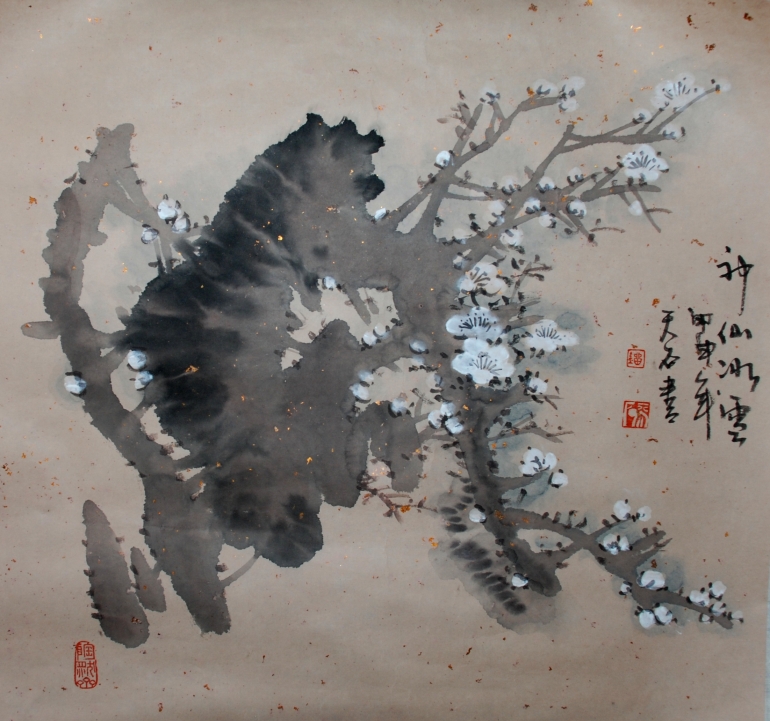 神仙冰雪
甲申年
天石書